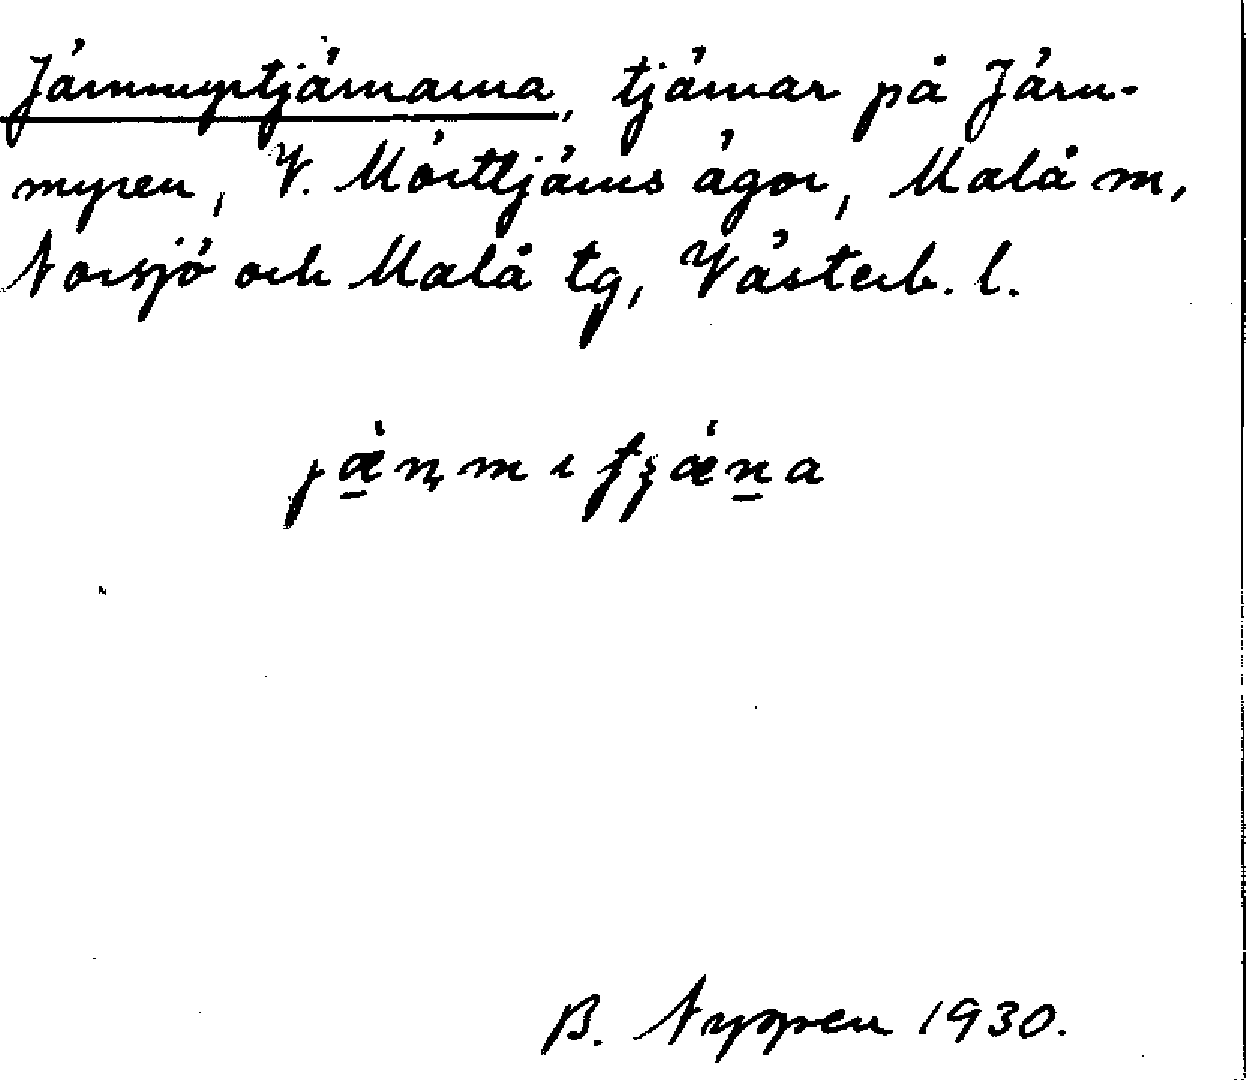 Järnmyrtjärnarna, tjärnar på Järn-
myren, V. Mörttjärns ägor, Malå m,
Norsjö och Malå tg, Västerb. l.
B. Nygren 1930.